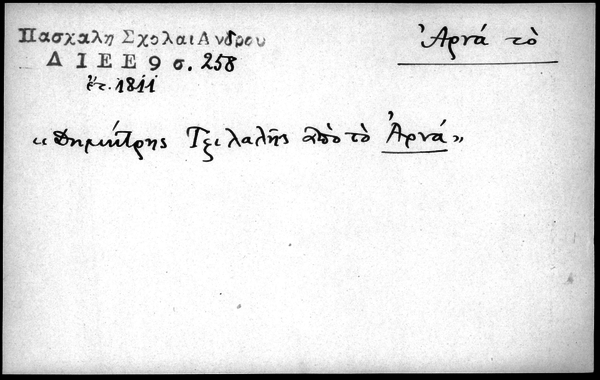 Πασχαλη Σχολαι Ανδρου
Δ Ι Ε Ε 9 σ. 258
ἔτ. 1811
Ἀρνά τὸ
«Δημήτρης Τζιλαλῆς ἀπὸ τὸ Ἀρνά»